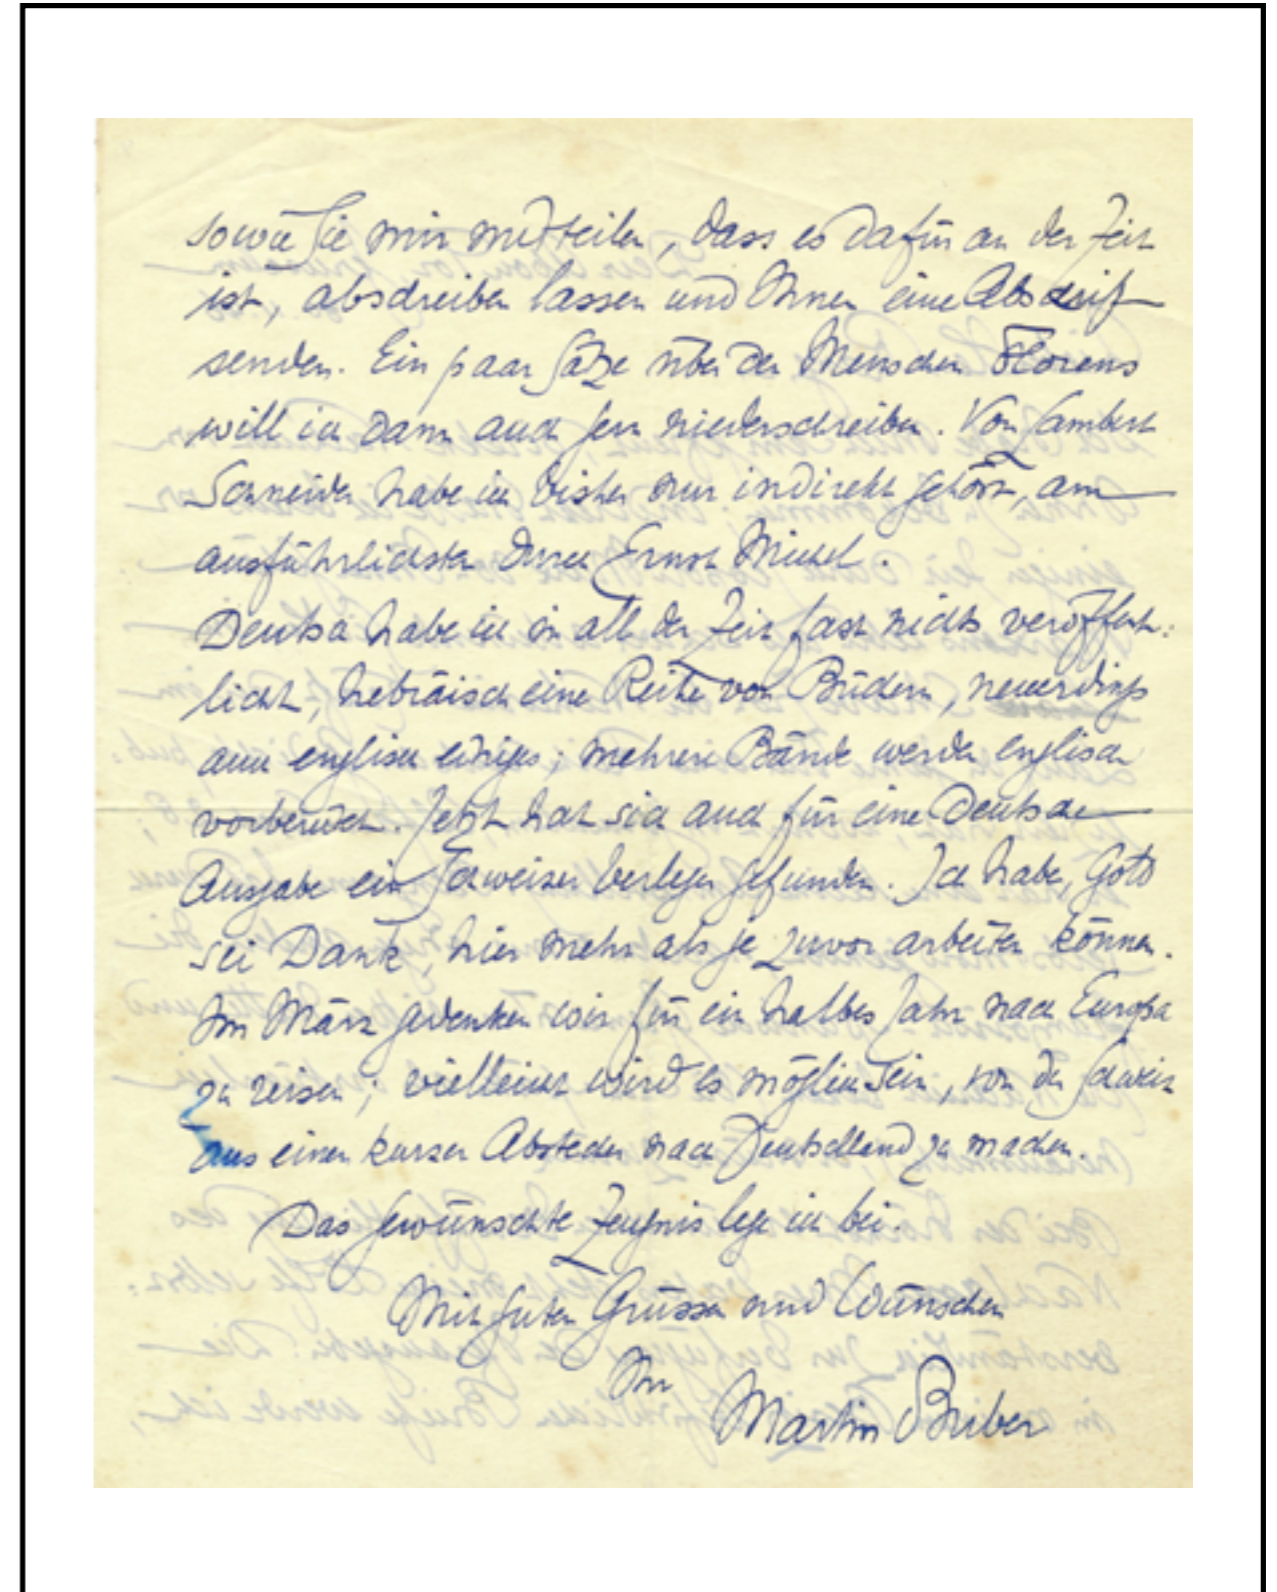 sowie Sie mir mitteilen, dass es dafür an der Zeit
ist, abschreiben lassen und Ihnen eine Abschrift
senden. Ein paar Sätze über den Menschen Florens
will ich dann auch gern niederschreiben. Von Lambert
Schneider habe ich bisher nur indirekt gehört, am
ausführlichsten durch Ernst Michel.
Deutsch habe ich in all der Zeit fast nichts veröffent-
licht, hebräisch eine Reihe von Büchern, neuerdings
auch englisch einiges; mehrere Bände werden englisch
vorbereitet. Jetzt hat sich auch für eine deutsche
Ausgabe ein Schweizer Verleger gefunden. Ich habe, Gott
sei Dank, hier mehr als je zuvor arbeiten können.
Im März gedenken wir für ein halbes Jahr nach Europa
zu reisen; vielleicht wird es möglich sein, von der Schweiz
aus einen kurzen Abstecher nach Deutschland zu machen.
Das gewünschte Zeugnis lege ich bei.
Mit guten Grüssen und Wünschen
Ihr
Martin Buber